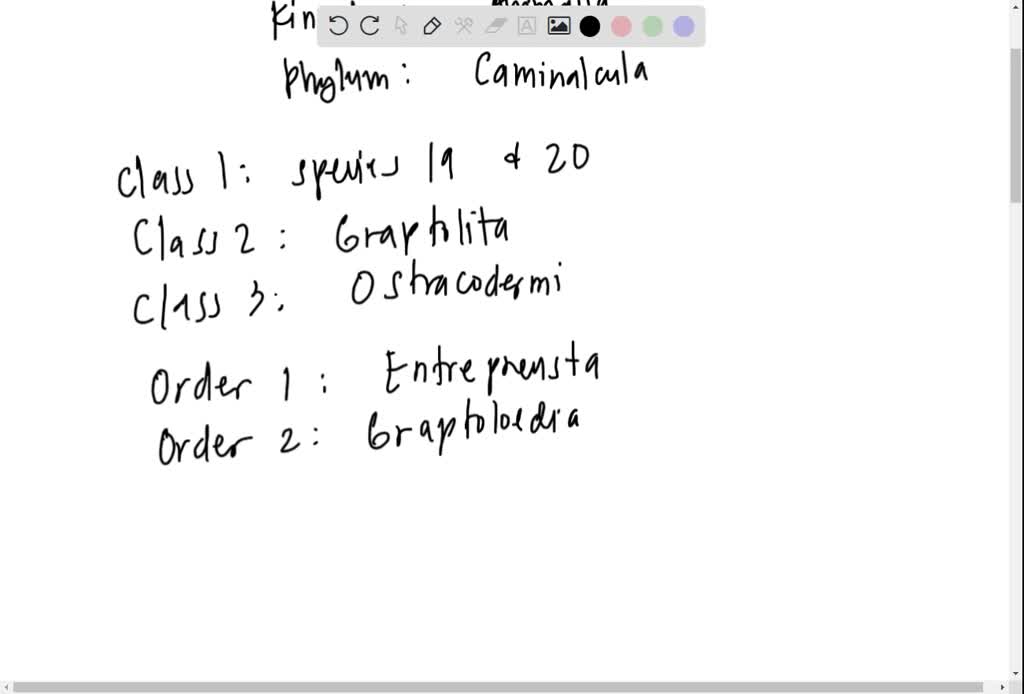 Kin
Phylum: Caminalcula
Class 1: species 19 & 20
Class 2: Graptolita
Class 3: Ostracodermi
Order 1: Entreprensta
Order 2: Graptoloedia